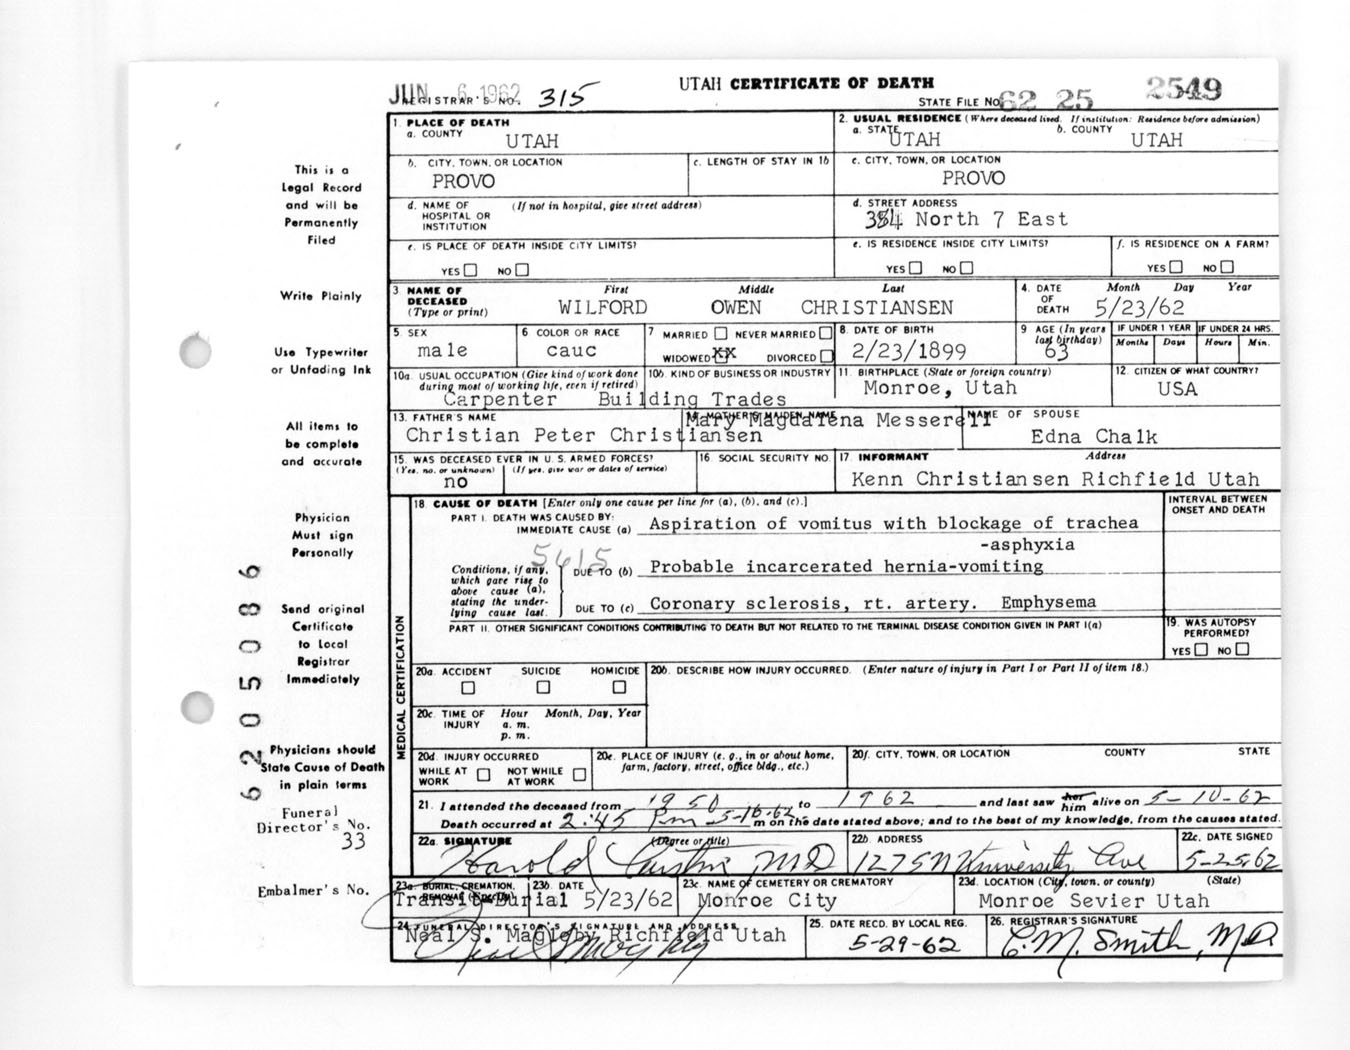 JUN 6 1962
REGISTRAR'S NO. 315
UTAH CERTIFICATE OF DEATH
STATE FILE NO. 62 25 2549
1. PLACE OF DEATH
a. COUNTY UTAH
2. USUAL RESIDENCE (Where deceased lived. If institution: Residence before admission)
a. STATE UTAH b. COUNTY UTAH
b. CITY, TOWN, OR LOCATION PROVO
c. LENGTH OF STAY IN 1b
c. CITY, TOWN, OR LOCATION PROVO
d. NAME OF HOSPITAL OR INSTITUTION (If not in hospital, give street address)
d. STREET ADDRESS
North 7 East
e. IS PLACE OF DEATH INSIDE CITY LIMITS?
YES NO
e. IS RESIDENCE INSIDE CITY LIMITS?
YES NO
f. IS RESIDENCE ON A FARM?
YES NO
3. NAME OF DECEASED (Type or print)
First Middle Last
WILFORD OWEN CHRISTIANSEN
4. DATE OF DEATH Month Day Year
5/23/62
5. SEX male
6. COLOR OR RACE cauc
7. MARRIED NEVER MARRIED
WIDOWED XX DIVORCED
8. DATE OF BIRTH 2/23/1899
9. AGE (In years last birthday) 63
IF UNDER 1 YEAR Months Days
IF UNDER 24 HRS. Hours Min.
10a. USUAL OCCUPATION (Give kind of work done during most of working life, even if retired)
Carpenter
10b. KIND OF BUSINESS OR INDUSTRY
Building Trades
11. BIRTHPLACE (State or foreign country)
Monroe, Utah
12. CITIZEN OF WHAT COUNTRY?
USA
13. FATHER'S NAME
Christian Peter Christiansen
14. MOTHER'S MAIDEN NAME
Mary Magdalena Messerell
NAME OF SPOUSE
Edna Chalk
15. WAS DECEASED EVER IN U. S. ARMED FORCES?
(Yes, no, or unknown) (If yes, give war or dates of service)
no
16. SOCIAL SECURITY NO.
17. INFORMANT Address
Kenn Christiansen Richfield Utah
MEDICAL CERTIFICATION
18. CAUSE OF DEATH [Enter only one cause per line for (a), (b), and (c).]
INTERVAL BETWEEN ONSET AND DEATH
PART I. DEATH WAS CAUSED BY:
IMMEDIATE CAUSE (a) Aspiration of vomitus with blockage of trachea
-asphyxia
5615
Conditions, if any, which gave rise to above cause (a), stating the underlying cause last.
DUE TO (b) Probable incarcerated hernia-vomiting
DUE TO (c) Coronary sclerosis, rt. artery. Emphysema
PART II. OTHER SIGNIFICANT CONDITIONS CONTRIBUTING TO DEATH BUT NOT RELATED TO THE TERMINAL DISEASE CONDITION GIVEN IN PART I(a)
19. WAS AUTOPSY PERFORMED?
YES NO
20a. ACCIDENT SUICIDE HOMICIDE
20b. DESCRIBE HOW INJURY OCCURRED. (Enter nature of injury in Part I or Part II of item 18.)
20c. TIME OF INJURY Hour Month, Day, Year
a. m.
p. m.
20d. INJURY OCCURRED
WHILE AT WORK NOT WHILE AT WORK
20e. PLACE OF INJURY (e. g., in or about home, farm, factory, street, office bldg., etc.)
20f. CITY, TOWN, OR LOCATION COUNTY STATE
21. I attended the deceased from 1950 to 1962 and last saw her him alive on 5-10-62
Death occurred at 2:45 Pm 5-16-62 m on the date stated above; and to the best of my knowledge, from the causes stated.
22a. SIGNATURE (Degree or title)
Harold Austin MD
22b. ADDRESS
1275 N University Ave
22c. DATE SIGNED
5-25-62
23a. BURIAL, CREMATION, REMOVAL (Specify)
Transit-Burial
23b. DATE 5/23/62
23c. NAME OF CEMETERY OR CREMATORY
Monroe City
23d. LOCATION (City, town, or county) (State)
Monroe Sevier Utah
24. FUNERAL DIRECTOR'S SIGNATURE AND ADDRESS
Neal S. Magleby Richfield Utah
Neal S Magleby
25. DATE RECD. BY LOCAL REG.
5-29-62
26. REGISTRAR'S SIGNATURE
C. M. Smith, M.D.
This is a
Legal Record
and will be
Permanently
Filed
Write Plainly
Use Typewriter
or Unfading Ink
All items to
be complete
and accurate
Physician
Must sign
Personally
Send original
Certificate
to Local
Registrar
Immediately
Physicians should
State Cause of Death
in plain terms
Funeral
Director's No.
33
Embalmer's No.
62 05086